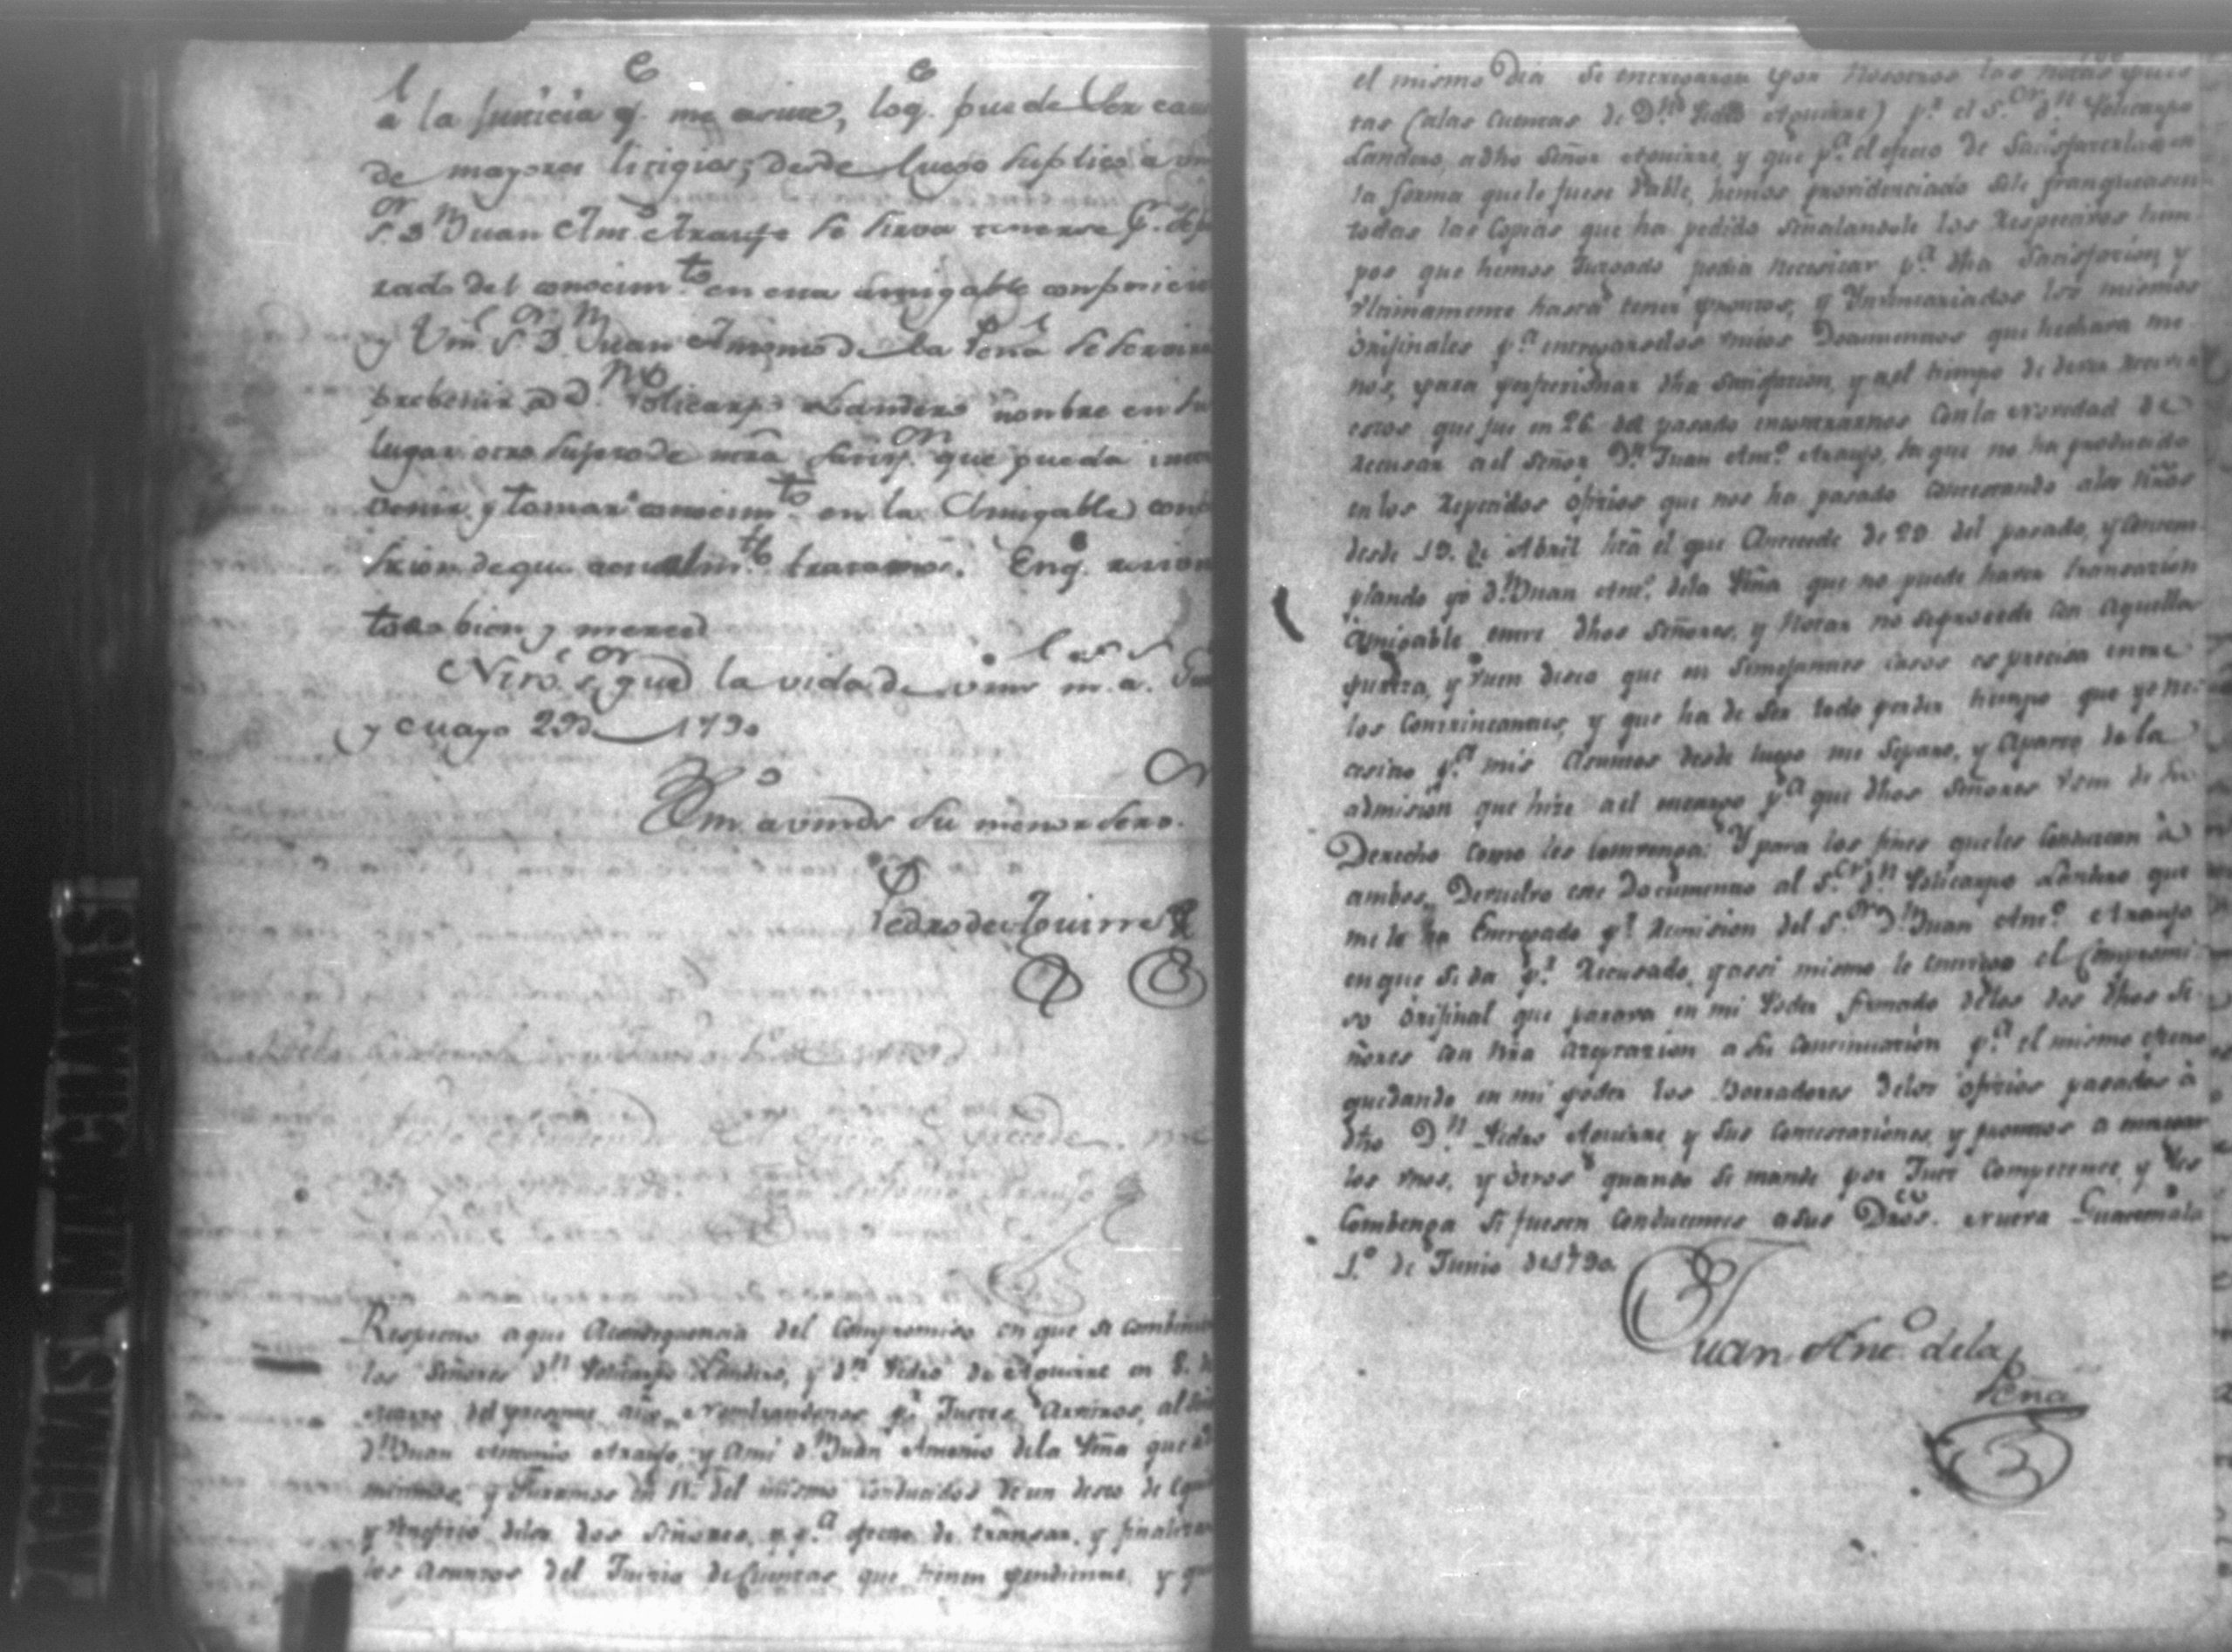 a la Justicia q. me asiste, loq. puede ser cau
de mayores litigios; desde luego suplico a vm
S.or D.n Juan Ant.o Araujo se sirva tenerse p.r
rado del conocim.to en esta amigable composicio
y Vm. S.or D.n Juan Antonio de la Peña se servira
prebenir a D.n Policarpo Landero nombre en su
lugar otro sujeto de ntra satisf.on que pueda
venir y tomar conocim.to en la Amigable comp
sicion de que actualm.te tratamos. En q.e
todo bien y merced
Ntro. S.or gue la vida de vms m.s a.s
y Mayo 29 de 1790
B.m. a vmds su menor serv.
Pedro de Aguirre
precede
Juan Antonio Araujo
Respecto a que a consequencia del Compromiso en que se combini
los Señores d.n Policarpo Landero, y d.n Pedro de Aguirre en 8. d
Marzo del presente año, Nombrandonos p.r Jueces Arvitros, al
d.n Juan Antonio Araujo, y a mi d.n Juan Antonio dela Peña que
mitimos, y Juramos en del mismo conducidos de un deseo de
y Veneficio delos dos Señores, y p.a efecto de transar, y finalizar
los asuntos del Juicio de Cuentas que tienen pendiente, y q
el mismo dia se entregaron por nosotros las notas pues
tas (alas Cuentas de D.n Pedro Aguirre) p.r el S.or d.n Policarpo
Landero, a dho Señor Aguirre, y que p.a el efecto de Satisfacerlas en
la forma quele fuese dable, hemos providenciado sele franqueasen
todas las Copias que ha pedido señalandole los Respectivos tiem
pos que hemos Juzgado podia necesitar p.a dha Satisfacion, y
Ultimamente hasta tener promtos, y Ynventariados los mismos
Orijinales p.a entregarselos Documentos que hechara me
nos, para perfeccionar dha Satisfacion, y al tiempo de
estos que fue en 26 del pasado encontrarnos con la Novedad de
Recusar a el Señor D.n Juan Ant.o Araujo, la que no ha producido
en los Repetidos Oficios que nos ha pasado Contestando alos ntros
desde 19. de Abril hta el que Antecede de 29 del pasado, y Contem
plando yo d.n Juan Ant.o dela Peña que no puede haver transacion
Amigable entre dhos Señores, y Notar no seprocede con aquella
pureza, y buen deseo que en semejantes casos es precisa entre
los Contrincantes, y que ha de ser todo perder tiempo que yo ne
cesito p.a mis Asuntos desde luego me Separo, y Aparto de la
admision que hize a el encargo p.a que dhos Señores Usen de su
Derecho como les combenga. Y para los fines queles Conduzcan à
ambos, Devuelvo este Documento al S.or d.n Policarpo Landero que
me le ha Entregado p.r Remision del S.or D.n Juan Ant.o Araujo
en que se da p.r Recusado, y assi mismo le entrego el Compromi
so Orijinal que parava en mi Poder firmado delos dos dhos Se
ñores con ntra Azeptacion a su Continuacion p.a el mismo efecto
quedando en mi poder los Borradores delos oficios pasados à
dho D.n Pedro Aguirre y sus Contestaciones, y promtos a entregar
los Unos, y Otros quando se mande por Juez Competente, y les
Combenga si fuesen Conducentes a sus Dros. Nueva Guatemala
1.º de Junio de 1790.
Juan Ant.o dela
Peña
PAGINAS MANCHADAS